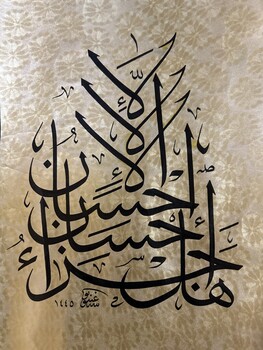 هل جزاء الإحسان إلا الإحسان
١٤٤٥